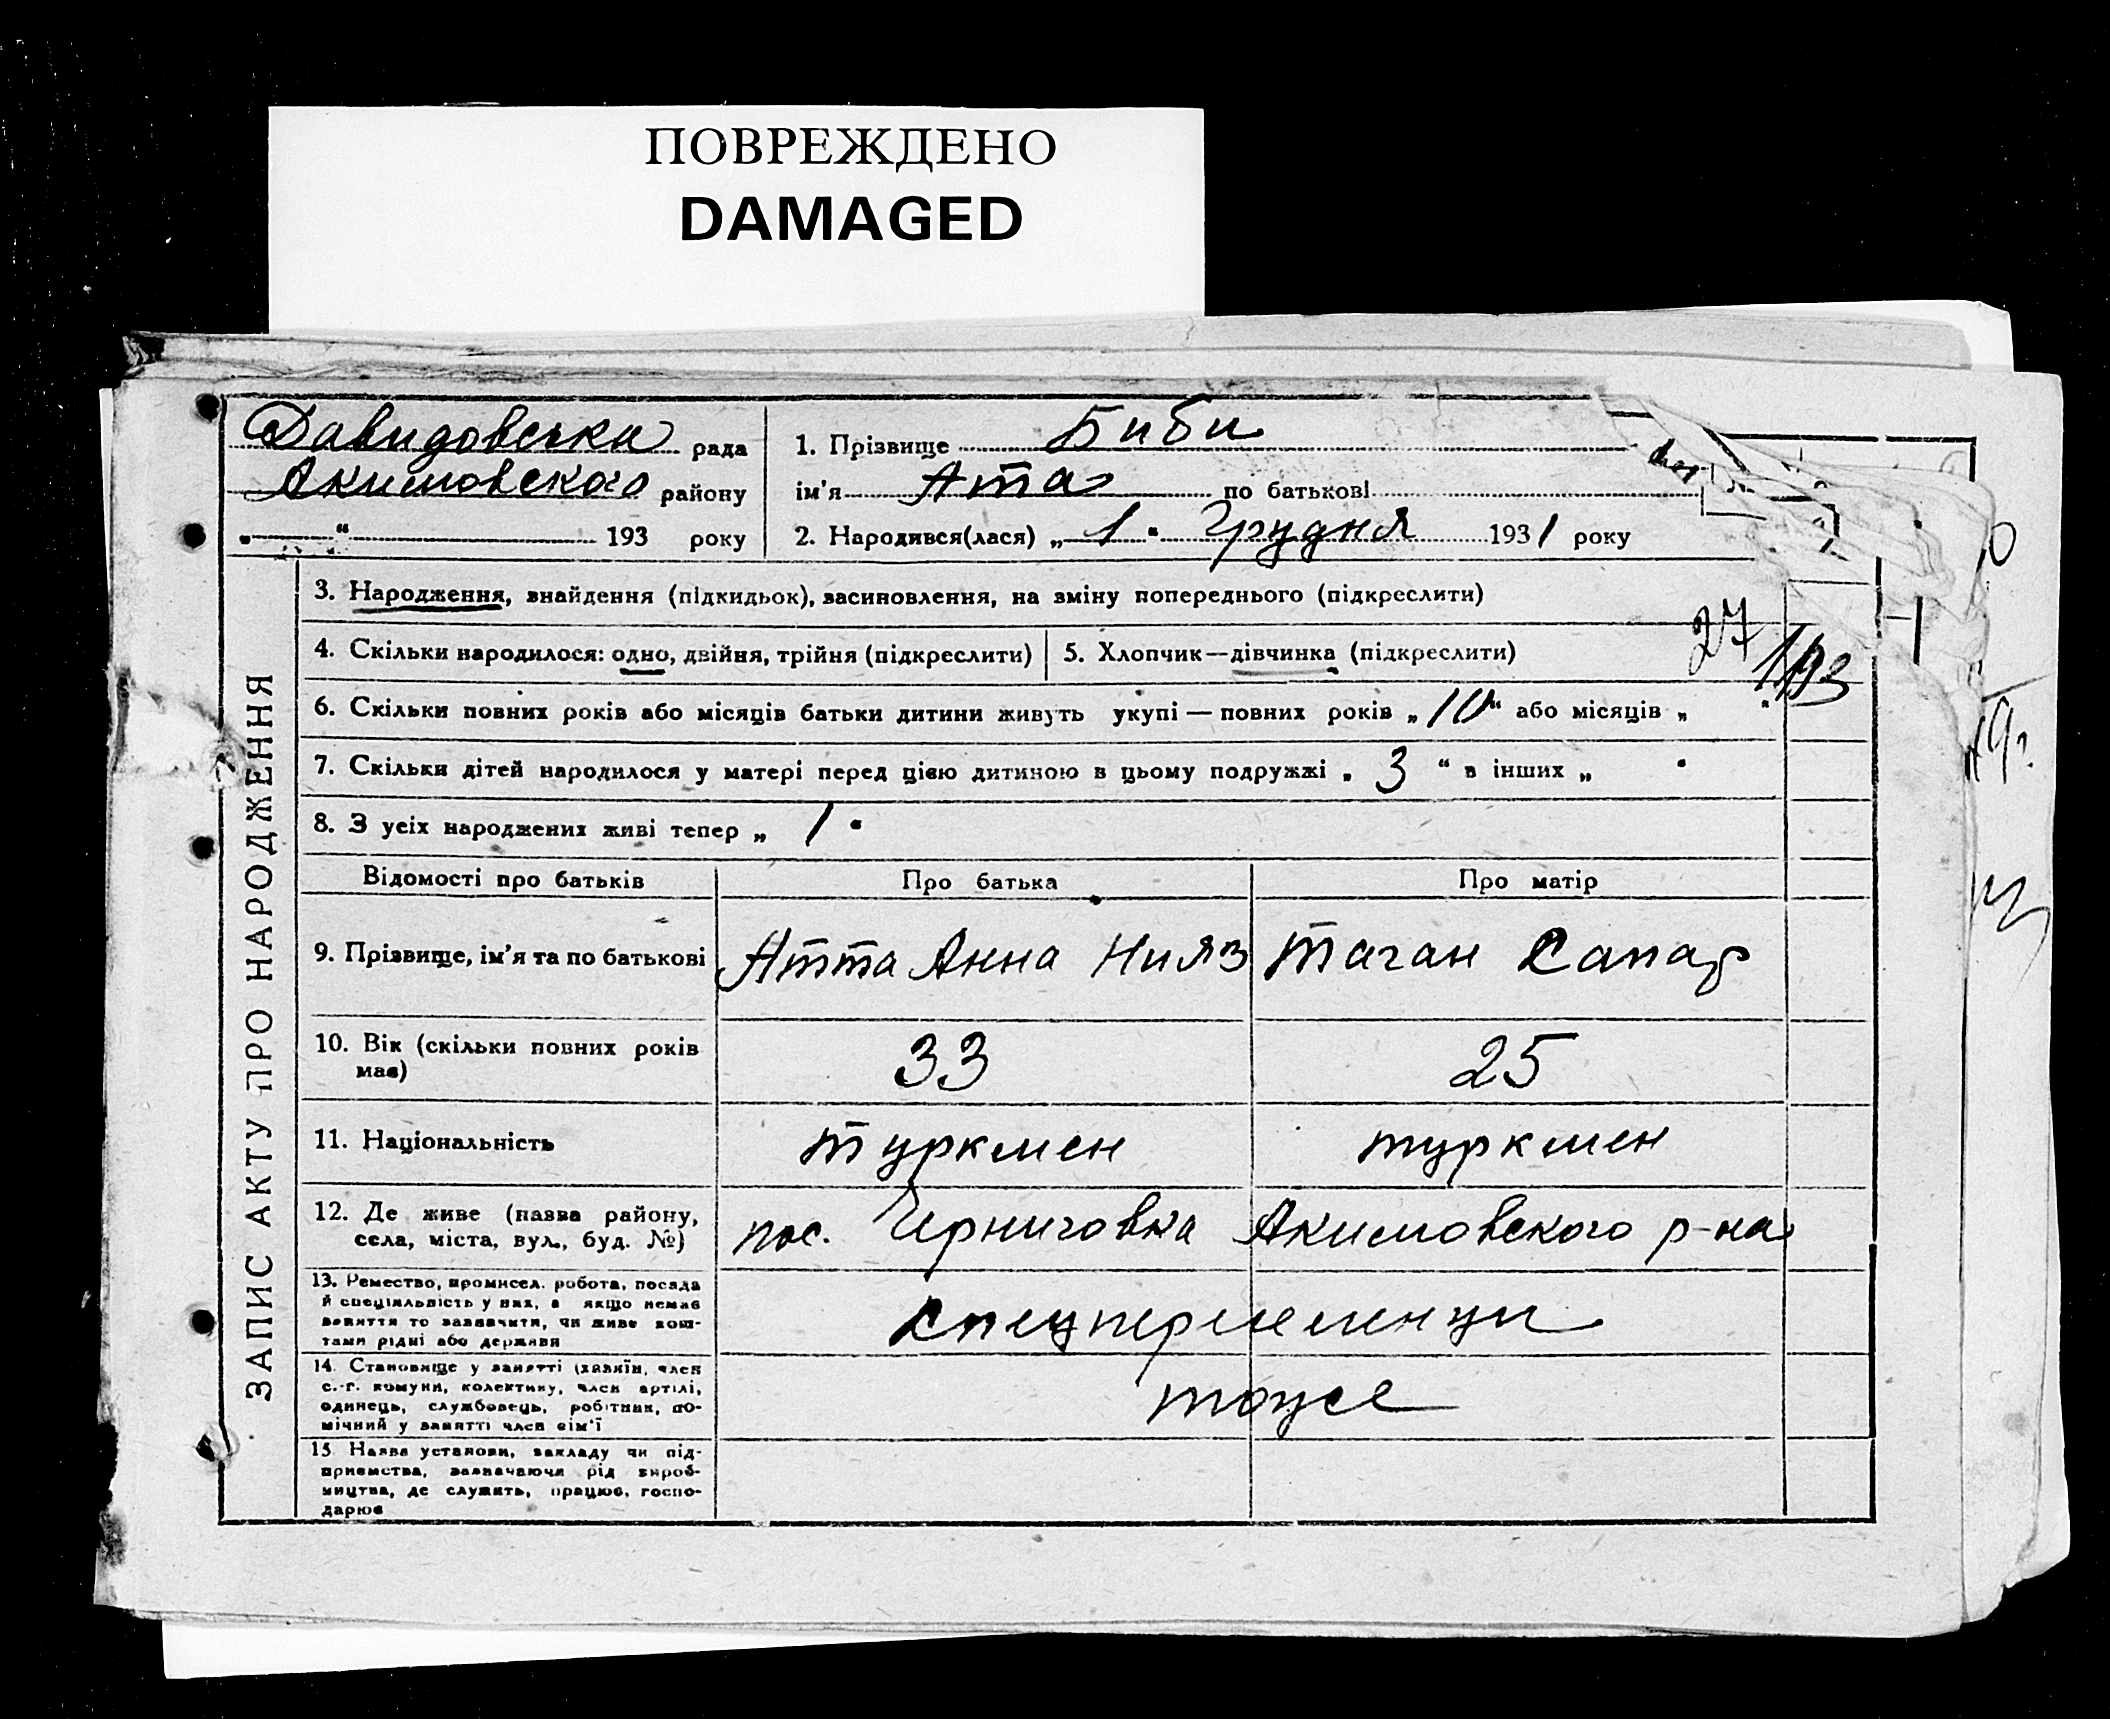 ПОВРЕЖДЕНО
DAMAGED
Давидовська рада
Акимовского району
„ “ 193 року
1. Прізвище Биби
ім’я Ата по батькові
2. Народився(лася) „ 1 “ Грудня 1931 року
ЗАПИС АКТУ ПРО НАРОДЖЕННЯ
3. Народження, знайдення (підкидьок), засиновлення, на зміну попереднього (підкреслити)
4. Скільки народилося: одно, двійня, трійня (підкреслити)
5. Хлопчик—дівчинка (підкреслити)
27
6. Скільки повних років або місяців батьки дитини живуть укупі — повних років „ 10 “ або місяців „ “
7. Скільки дітей народилося у матері перед цією дитиною в цьому подружжі „ 3 “ в інших „ “
8. З усіх народжених живі тепер „ 1 “
Відомості про батьків Про батька Про матір
9. Прізвище, ім’я та по батькові Атта Анна Нияз Таган Сапар
10. Вік (скільки повних років має) 33 25
11. Національність туркмен туркмен
12. Де живе (назва району, села, міста, вул., буд. №) пос. Черниговка Акимовского р-на
13. Ремество, промисел, робота, посада
й спеціяльність у них, а якщо немає
заняття то зазначити, чи живе кош-
тами рідні або держави
спецпереселенцы
14. Становище у занятті (хазяїн, член
с.-г. комуни, колективу, член артілі,
одинець, службовець, робітник, по-
мічний у занятті член сім’ї
тоже
15 Назва установи, закладу чи під-
приємства, зазначаючи рід вироб-
ництва, де служить, працює, госпо-
дарює